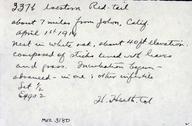 3376 Western Red-tail
about 7 miles from Jolon, Calif
April 1st 19
nest in white oak, about 40 ft elevation.
composed of sticks lined with leaves
and grass. Incubation begun -
advanced - in one; other infertile
Set 1/2
Eggs 2
H. Heath, Col
MVZ 3180